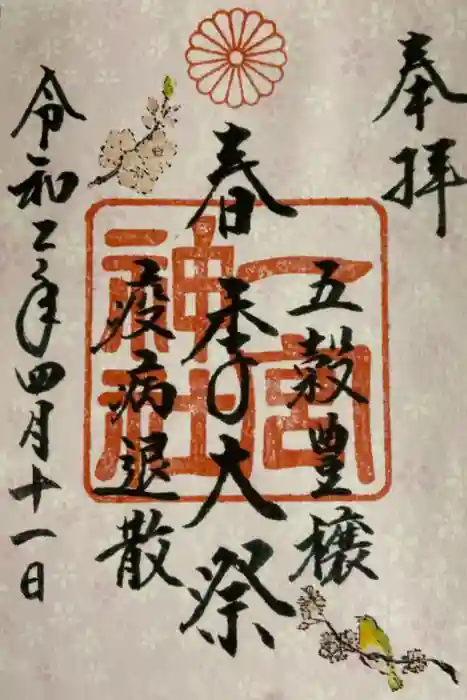 奉拝
五穀豊穣
春季大祭
疫病退散
令和二年四月十一日
一宮神社